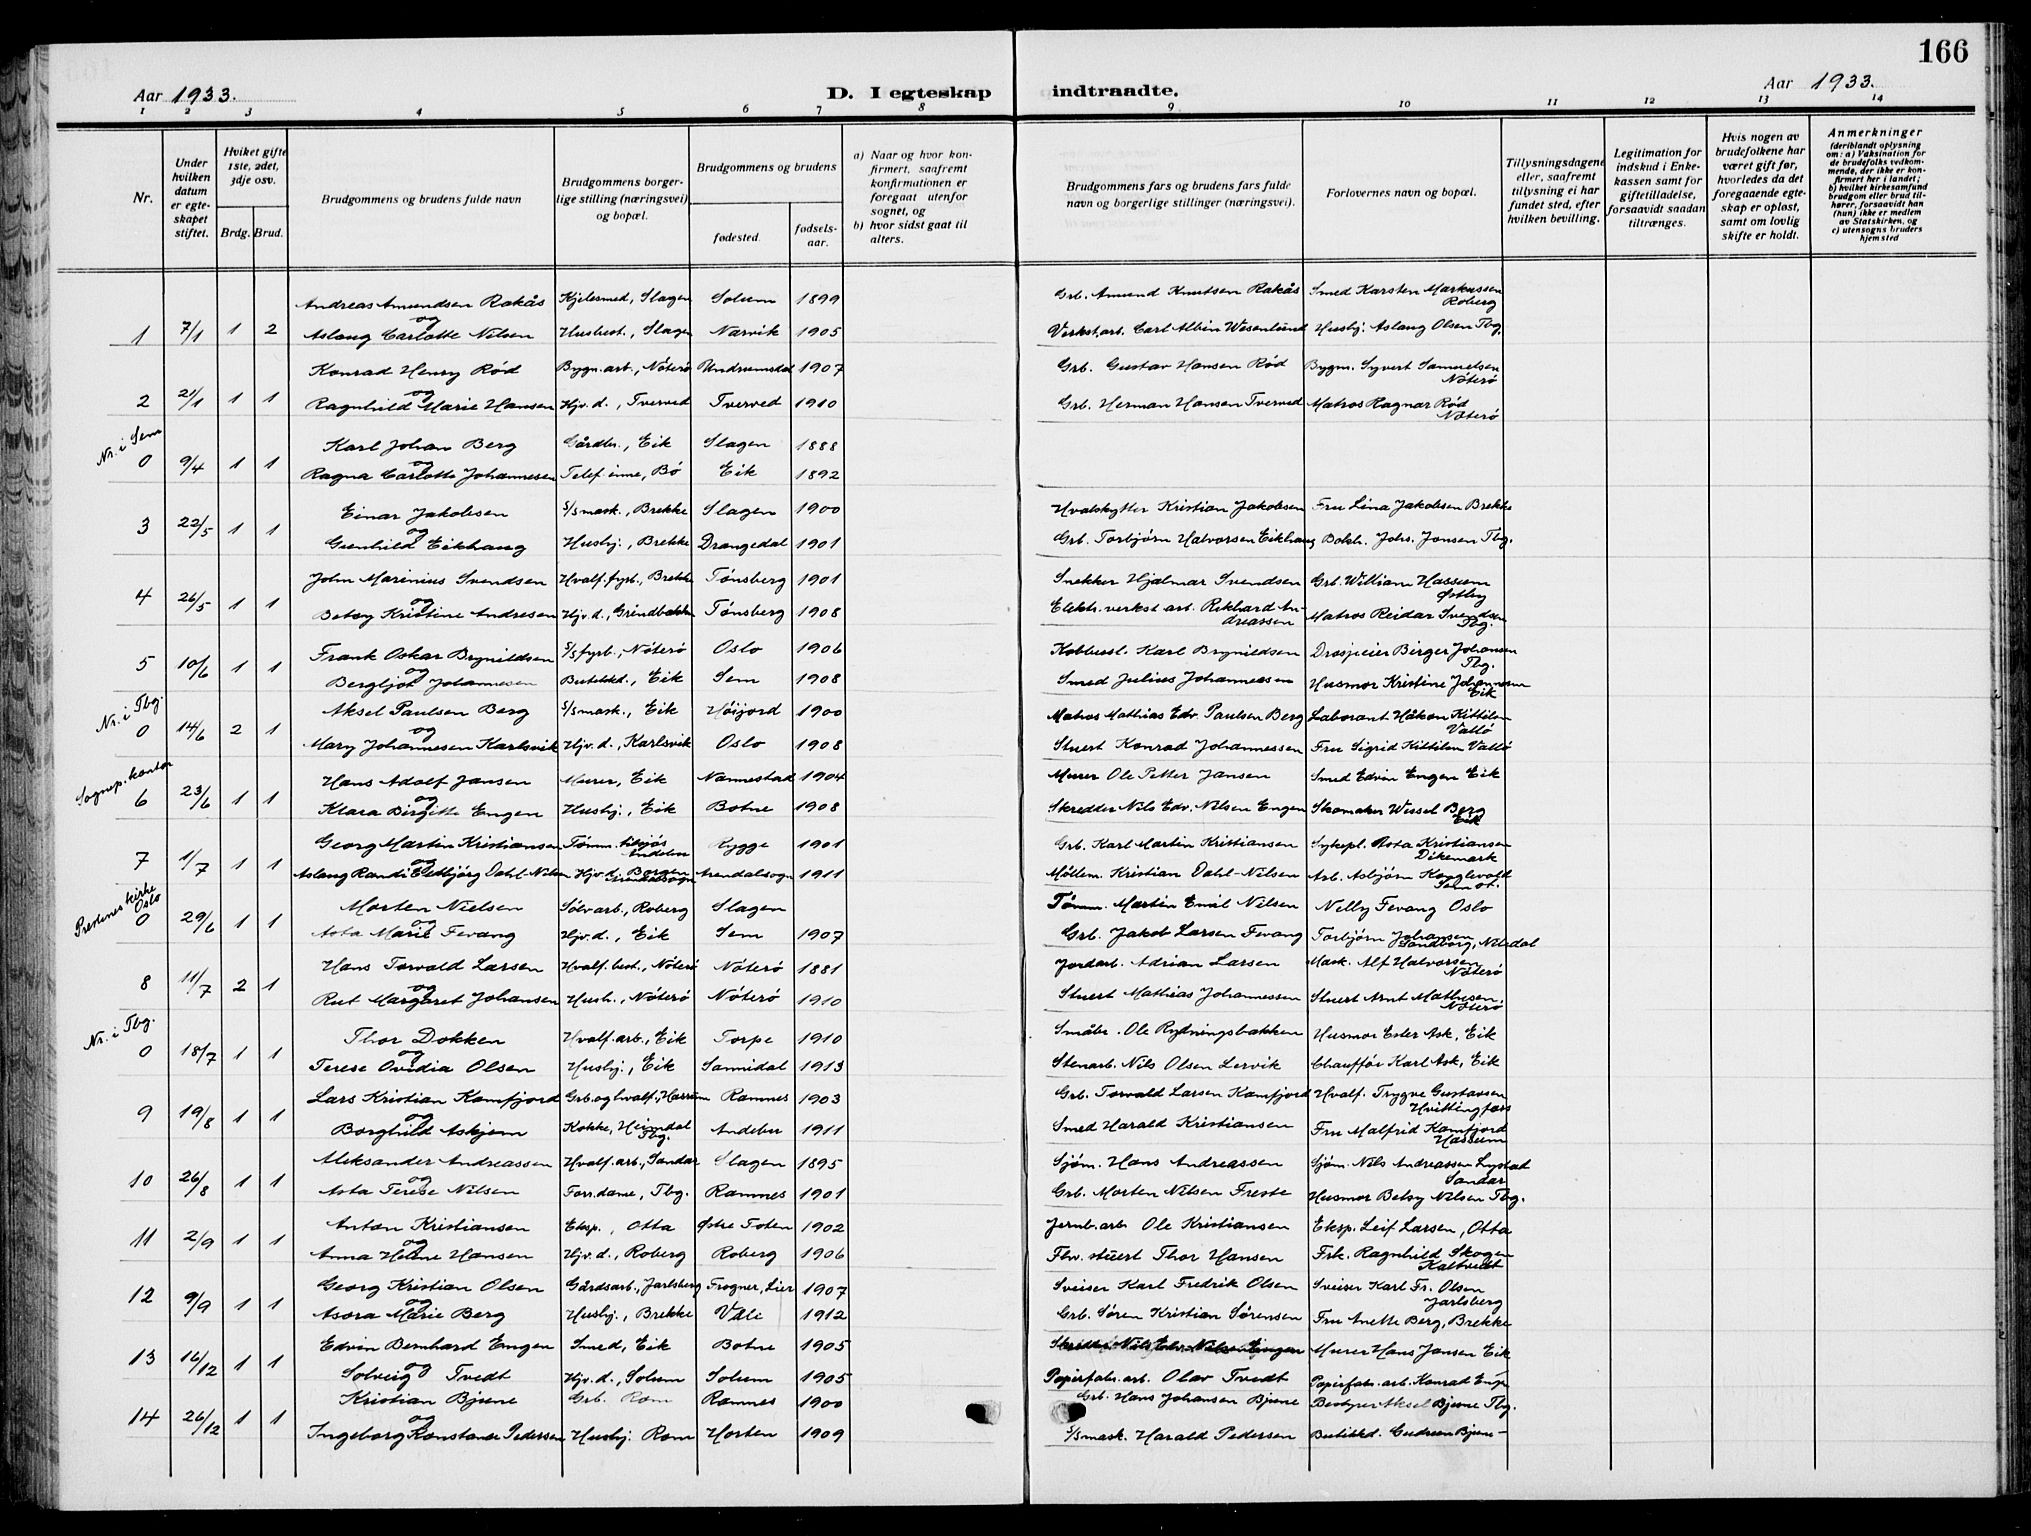 166
Aar 1933. D. I egteskap indtraadte. Aar 1933.
1 2 3 4 5 6 7 8 9 10 11 12 13 14
Nr.
Under hvilken datum er egteskapet stiftet.
Hviket gifte 1ste, 2det, 3dje osv.
Brdg. Brud.
Brudgommens og brudens fulde navn
Brudgommens borgerlige stilling (næringsvei) og bopæl.
Brudgommens og brudens
fødested. fødselsaar.
a) Naar og hvor konfirmert, saafremt konfirmationen er foregaat utenfor sognet, og
b) hvor sidst gaat til alters.
Brudgommens fars og brudens fars fulde navn og borgerlige stillinger (næringsvei).
Forlovernes navn og bopæl.
Tillysningsdagene eller, saafremt tillysning ei har fundet sted, efter hvilken bevilling.
Legitimation for indskud i Enkekassen samt for giftetilladelse, forsaavidt saadan tiltrænges.
Hvis nogen av brudefolkene har været gift før, hvorledes da det foregaaende egteskap er opløst, samt om lovlig skifte er holdt.
Anmerkninger
(deriblandt oplysning om: a) Vaksination for de brudefolks vedkommende, der ikke er konfirmert her i landet; b) hvilket kirkesamfund brudgom eller brud tilhører, forsaavidt han (hun) ikke er medlem av Statskirken, og c) utensogns bruders hjemsted
Andreas Amundsen Rakås Kjelesmed, Slagen Solum 1899 Grb. Amund Knutsen Rakås Smed Karsten Markussen Roberg
og
1 7/1 1 2 Aslaug Carlotte Nilsen Husbest., Slagen Narvik 1905 Verkst.arb. Carl Albin Wesenlund Husbj. Aslaug Olsen Tbg.
Konrad Henry Rød Bygn.arb., Nøterø Undrumsdal 1907 Grb. Gustav Hansen Rød Bygm. Syvert Samuelsen Nøterø
og
2 21/1 1 1 Ragnhild Marie Hansen Hjv.d., Tverved Tverved 1910 Grb. Herman Hansen Tverved Matros Ragnar Rød Nøterø
Nr. i Sem
Karl Johan Berg Gårdbr., Eik Slagen 1888
og
0 9/4 1 1 Ragna Carlotte Johannessen Telef.inne, Bø Eik 1892
Einar Jakobsen S/S mask., Brekke Slagen 1900 Hvalskytter Kristian Jakobsen Fru Lina Jakobsen Brekke
og
3 22/5 1 1 Gunhild Eikhaug Husbj., Brekke Drangedal 1901 Grb. Torbjørn Halvorsen Eikhaug Bokh. Johs. Jonsen Tbg.
John Marinius Svendsen Hvalf.fyrb., Brekke Tønsberg 1901 Snekker Hjalmar Svendsen Grb. William Hassum Østby
og
4 26/5 1 1 Betsy Kristine Andresen Hjv.d., Grindbakken Tønsberg 1908 Elektr.verkst arb. Rikhard Andreassen Matros Reidar Svendsen Tbg.
Frank Oskar Brynildsen S/S fyrb., Nøterø Oslo 1906 Kobbersl. Karl Brynildsen Drosjeeier Birger Johansen Tbg.
og
5 10/6 1 1 Bergljot Johannesen Butikkd., Eik Sem 1908 Smed Julius Johannessen Husmor Kristine Johannesen Eik
Nr. i Tbg.
Aksel Paulsen Berg S/S mask., Eik Høijord 1900 Matros Mathias Edv. Paulsen Berg Laborant Håkon Kittilsen Vallø
og
0 14/6 2 1 Mary Johannesen Karlsvik Hjv.d., Karlsvik Oslo 1908 Stuert Konrad Johannessen Fru Sigrid Kittilsen Vallø
Sognep. kontor
Hans Adolf Jansen Murer, Eik Nannestad 1904 Murer Ole Petter Jansen Smed Edvin Engen Eik
og
6 23/6 1 1 Klara Birgitte Engen Husbj., Eik Botne 1908 Skredder Nils Edv. Nilsen Engen Skomaker Wessel Berg Eik
Georg Martin Kristiansen Tømm. Rygge 1901 Grb. Karl Martin Kristiansen Sykepl. Asta Kristiansen Dikemark
og
7 1/7 1 1 Aslaug Randi Dahl-Nilsen Hjv.d. Borgen Arendalsogn 1911 Møllem. Kristian Dahl-Nilsen Arb. Asbjørn Sem
Prestenes kirke Oslo
Morten Nielsen Sølvarb., Roberg Slagen Tømm. Martin Emil Nilsen Nelly Fevang Oslo
og
0 29/6 1 1 Asta Marie Fevang Hjv.d., Eik Sem 1907 Grb. Jakob Larsen Fevang Torbjørn Johansen Sandborg, Nitedal
Hans Torvald Larsen Hvalf.best., Nøterø Nøterø 1881 Jordarb. Adrian Larsen Mask. Alf Halvorsen Nøterø
og
8 11/7 2 1 Rut Margaret Johansen Husb., Nøterø Nøterø 1910 Stuert Mathias Johannessen Stuert Arnt Mathisen, Nøterø
Nr. i Tbg.
Thor Dokken Hvalf.arb., Eik Torpe 1910 Småbr. Ole Rydningsbakken Husmor Ester Ask, Eik
og
0 18/7 1 1 Terese Ovidia Olsen Husbj., Eik Sannidal 1913 Stenarb. Nils Olsen Lervik Chauffør Karl Ask, Eik
Lars Kristian Kamfjord Grb. og hvalf., Hassum Ramnes 1903 Grb. Torvald Larsen Kamfjord Hvalf. Trygve Gustavsen Hvittingfoss
og
9 19/8 1 1 Borghild Askjem Kokke, Heimdal Tbg. Andebu 1911 Smed Harald Kristiansen Fru Malfrid Kamfjord Hassum
Aleksander Andreassen Hvalf.arb., Sandar Slagen 1895 Sjøm. Hans Andreassen Sjøm. Nils Andreassen Lystad Sandar
og
10 26/8 1 1 Asta Terese Nilsen Forr.dame, Tbg. Ramnes 1901 Grb. Morten Nilsen Freste Husmor Betsy Nilsen Tbg.
Anton Kristiansen Eksp., Otta Østre Toten 1902 Jernb.arb. Ole Kristiansen Eksp. Leif Larsen, Otta
og
11 2/9 1 1 Anna Helene Hansen Hjv.d., Roberg Roberg 1906 Fhv. stuert Thor Hansen Frk. Ragnhild Skogen Kaltvedt
Georg Kristian Olsen Gårdsarb., Jarlsberg Frogner, Lier 1907 Sveiser Karl Fredrik Olsen Sveiser Karl Fr. Olsen Jarlsberg
og
12 9/9 1 1 Asora Marie Berg Husbj., Brekke Våle 1912 Grb. Søren Kristian Sørensen Fru Anette Berg, Brekke
Edvin Bernhard Engen Smed, Eik Botne 1905 Skredder Nils Edv. Nilsen Engen Murer Hans Jansen Eik
og
13 16/12 1 1 Solveig Tvedt Hjv.d., Solum Solum 1905 Papirfabr.arb. Olav Tvedt Papirfabr.arb. Konrad
Kristian Bjune Grb. Rom Ramnes 1900 Grb. Hans Johansen Bjune Bestyrer Aksel Bjune Tbg.
og
14 26/12 1 1 Ingeborg Konstanse Pedersen Husbj. Rom Horten 1909 S/S mask. Harald Pedersen Butikkd. Gudrun Bjune